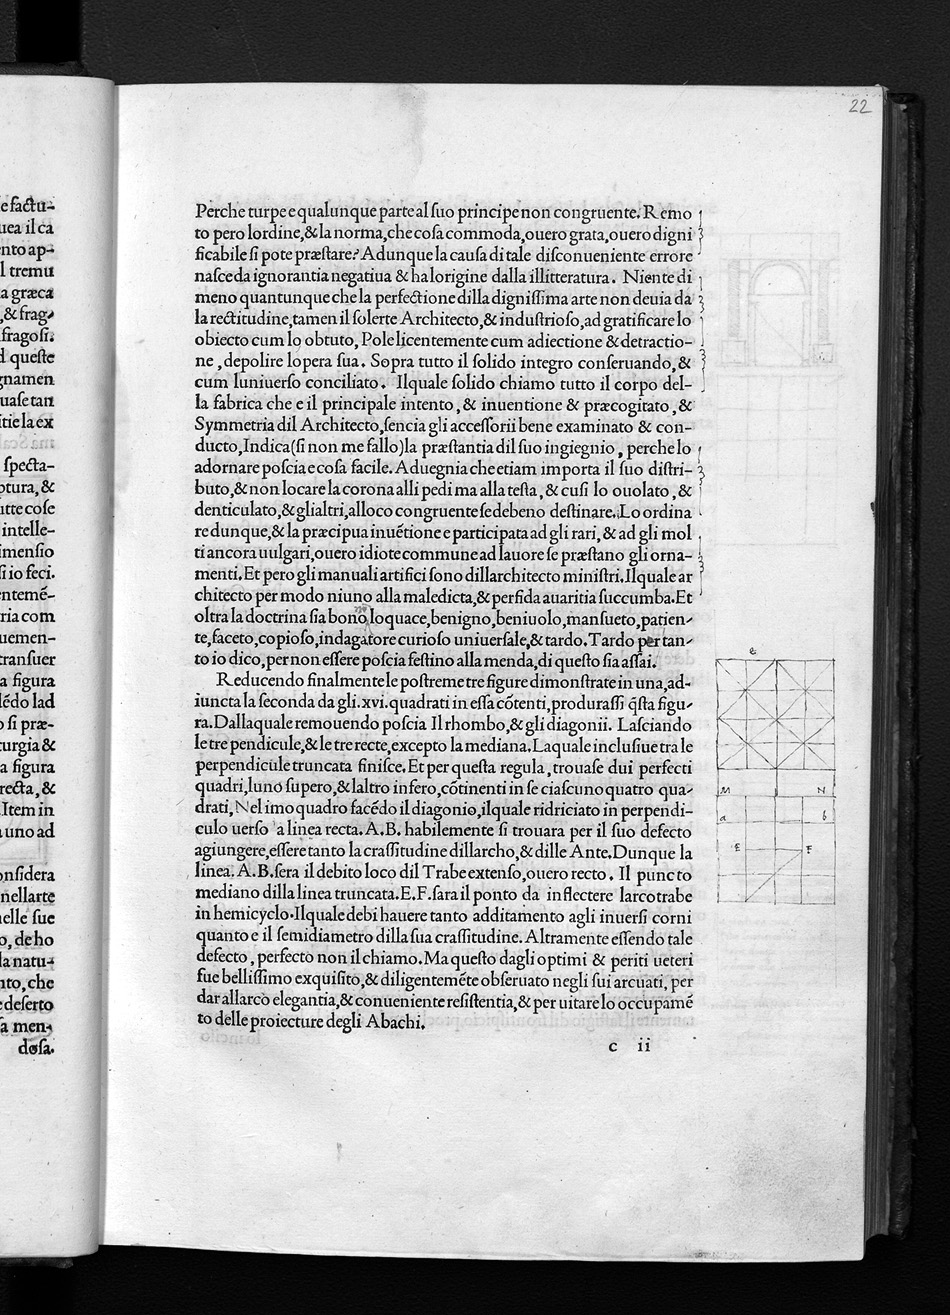 22
e factu-
uea il ca
nto ap-
l tremu
a græca
,& frag-
fragosi:
d queste
gnamen
uase tan
itie la ex
specta-
ptura, &
utte cose
intelle-
imensio
si io feci.
entemē-
ria com
uemen-
transuer
a figura
lēdo lad
o si præ-
urgia &
a figura
recta, &
Item in
a uno ad
onsidera
nellarte
nelle sue
o, de ho
la natu-
nto, che
e deserto
sa men-
dosa.
Perche turpe e qualunque parte al suo principe non congruente. Remo
to pero lordine,& la norma,che cosa commoda,ouero grata,ouero digni
ficabile si pote præstare? Adunque la causa di tale disconueniente errore
nasce da ignorantia negatiua & ha lorigine dalla illitteratura. Niente di
meno quantunque che la perfectione dilla dignissima arte non deuia da
la rectitudine,tamen il solerte Architecto,& industrioso,ad gratificare lo
obiecto cum lo obtuto, Pole licentemente cum adiectione & detractio-
ne, depolire lopera sua. Sopra tutto il solido integro conseruando,&
cum luniuerso conciliato. Ilquale solido chiamo tutto il corpo del-
la fabrica che e il principale intento, & inuentione & præcogitato, &
Symmetria dil Architecto,sencia gli accessorii bene examinato & con-
ducto,Indica(si non me fallo)la præstantia dil suo ingiegnio, perche lo
adornare poscia e cosa facile. Aduegnia che etiam importa il suo distri-
buto,& non locare la corona alli pedi ma alla testa, & cusi lo ouolato, &
denticulato,& glialtri,alloco congruente se debeno destinare. Lo ordina
re dunque,& la præcipua inuētione e participata ad gli rari, & ad gli mol
ti ancora uulgari,ouero idiote commune ad lauore se præstano gli orna-
menti. Et pero gli manuali artifici sono dillarchitecto ministri. Ilquale ar
chitecto per modo niuno alla maledicta,& perfida auaritia succumba. Et
oltra la doctrina sia bono, loquace, benigno, beniuolo, mansueto, patien-
te, faceto, copioso, indagatore curioso uniuersale,& tardo. Tardo per tan-
to io dico, per non essere poscia festino alla menda, di questo sia assai.
Reducendo finalmente le postreme tre figure dimonstrate in una,ad-
iuncta la seconda da gli.xvi.quadrati in essa cōtenti,produrassi q̄sta figu-
ra. Dallaquale remouendo poscia Il rhombo,& gli diagonii. Lasciando
le tre pendicule,& le tre recte,excepto la mediana. Laquale inclusiue tra le
perpendicule truncata finisce. Et per questa regula, trouase dui perfecti
quadri,luno supero,& laltro infero,cōtinenti in se ciascuno quatro qua-
drati, Nel imo quadro facēdo il diagonio,ilquale ridriciato in perpendi-
culo uerso la linea recta. A.B. habilemente si trouara per il suo defecto
agiungere,essere tanto la crassitudine dillarcho,& dille Ante. Dunque la
linea. A.B. sera il debito loco dil Trabe extenso,ouero recto. Il puncto
mediano dilla linea truncata. E.F. sara il ponto da inflectere larcotrabe
in hemicyclo. Ilquale debi hauere tanto additamento agli inuersi corni
quanto e il semidiametro dilla sua crassitudine. Altramente essendo tale
defecto, perfecto non il chiamo. Ma questo dagli optimi & periti ueteri
fue bellissimo exquisito,& diligentemēte obseruato negli sui arcuati, per
dar allarco elegantia,& conueniente resistentia,& per uitare lo occupamē
to delle proiecture degli Abachi.
c ii
M N
a b
E F